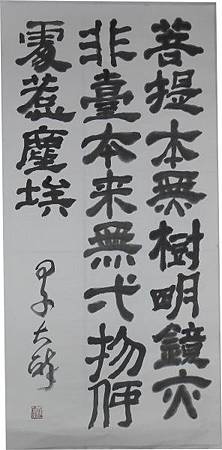 菩提本無樹明鏡亦
非臺本来無弌物何
處惹塵埃